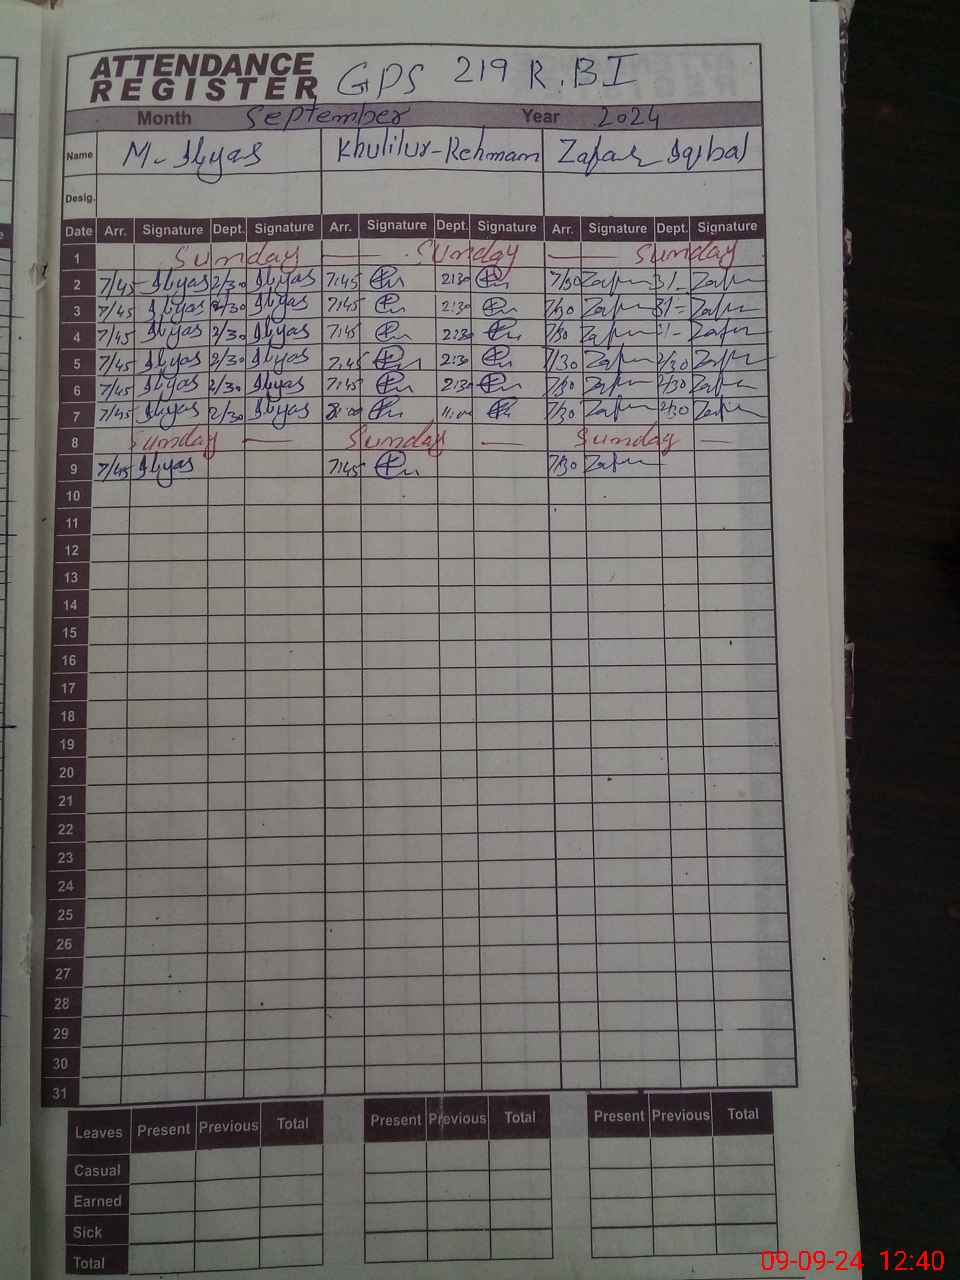 ATTENDANCE
REGISTER GPS 219 R.BI
Month September Year 2024
Name M. Ilyas Khulilur-Rehmam Zafar Iqbal
Desig.
Date Arr. Signature Dept. Signature Arr. Signature Dept. Signature Arr. Signature Dept. Signature
1 Sunday — Sunday — Sunday
2 7/45 Ilyas 2/30 Ilyas 7:45 2:30 7/30 Zafar 3/- Zafar
3 7/45 Ilyas 2/30 Ilyas 7:45 2:30 7/30 Zafar 3/= Zafar
4 7/45 Ilyas 2/30 Ilyas 7:45 2:30 7/30 Zafar Zafar
5 7/45 Ilyas 2/30 Ilyas 7:45 2:30 7/30 Zafar 2/30 Zafar
6 7/45 Ilyas 2/30 Ilyas 7:45 2:30 7/30 Zafar 2/30 Zafar
7 7/45 Ilyas 2/30 Ilyas 8:00 11:00 7/30 Zafar 2:30 Zafar
8 Sunday — Sunday — Sunday —
9 7/45 Ilyas 7:45 7/30 Zafar
10
11
12
13
14
15
16
17
18
19
20
21
22
23
24
25
26
27
28
29
30
31
Leaves Present Previous Total Present Previous Total Present Previous Total
Casual
Earned
Sick
Total
09-09-24 12:40